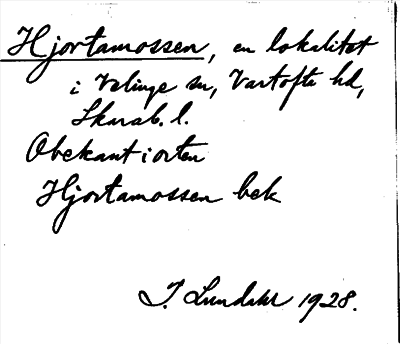 Hjortamossen, en lokalitet
i Valinge sn, Vartofta hd,
Skarab. l.
Obekant i orten
Hjortamossen bek
I. Lundahl 1928.